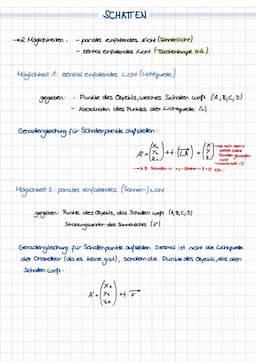 SCHATTEN
→ 2 Möglichkeiten: - paralles einfallendes Licht (Sonnenlicht)
- zentral einfallendes Licht (Taschenlampe o.ä.)
Möglichkeit 1: zentral einfallendes Licht (Lichtquelle)
gegeben: - Punkte des Objekts, welches Schatten wirft (A, B, C, D)
- Koordinaten des Punkts der Lichtquelle (L)
Geradengleichung für Schattenpunkte aufstellen:
A' = (xₐ yₐ zₐ) + t · (LA) = (x y z)
Möglichkeit 2: paralles einfallendes (Sonnen-) Licht
gegeben: Punkte des Objekts, das Schatten wirft (A, B, C, D)
Strahlungsvektor des Sonnenlichts (v)
Geradengleichung für Schattenpunkte aufstellen. Diesmal ist nicht die Lichtquelle
der Ortsvektor (da es keine gibt), sondern die Punkte des Objekts, das den
Schatten wirft.
A' = (xₐ yₐ zₐ) + t · v